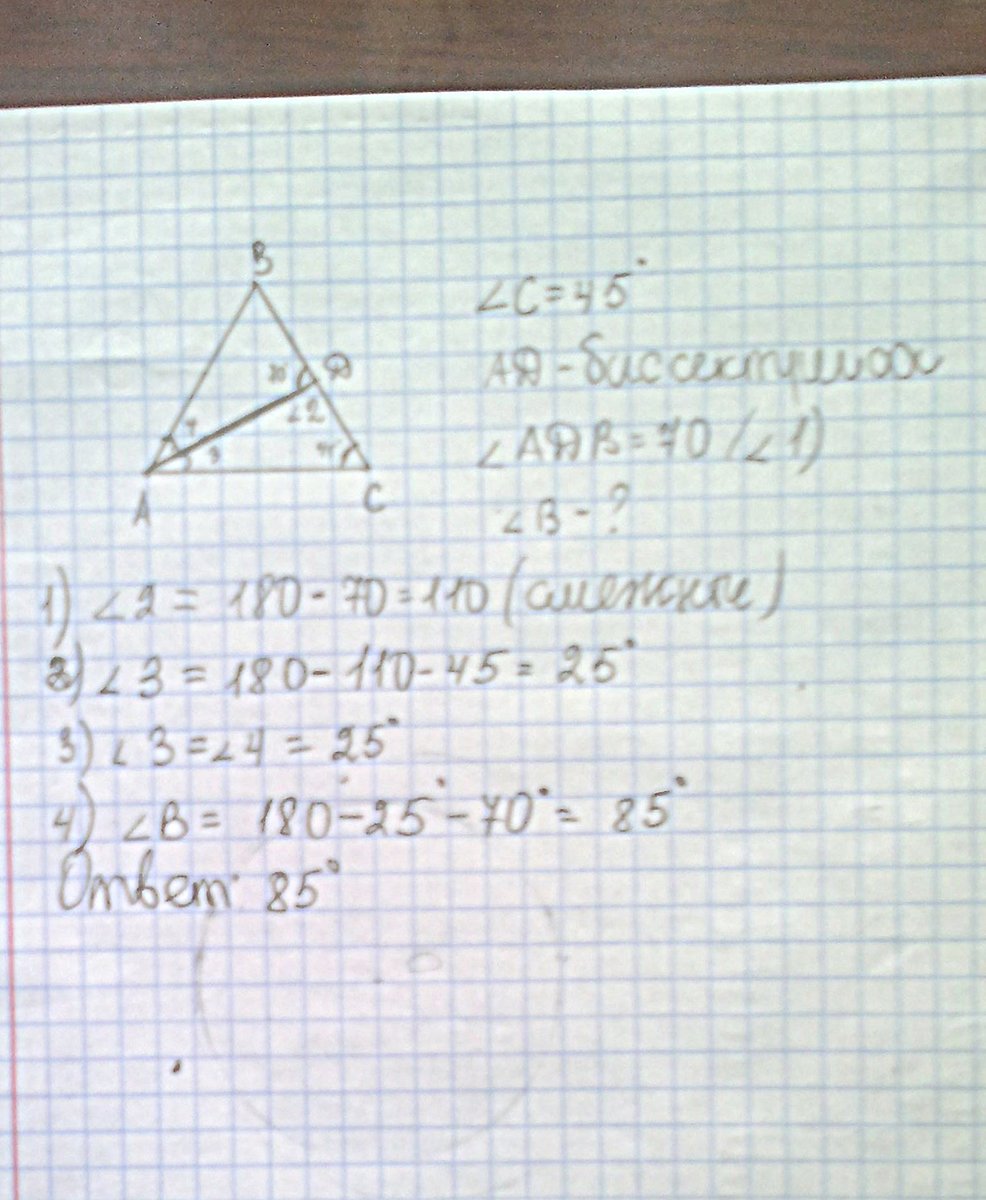 B
∠C=45°
70 D
AD-биссектриса
∠2
4
3
45
∠ADB=70 (∠1)
A
C
∠B-?
1) ∠2 = 180-70=110 (смежные)
2) ∠3 = 180-110-45= 25°
3) ∠3=∠4 = 25°
4) ∠B= 180-25°-70°= 85°
Ответ 85°